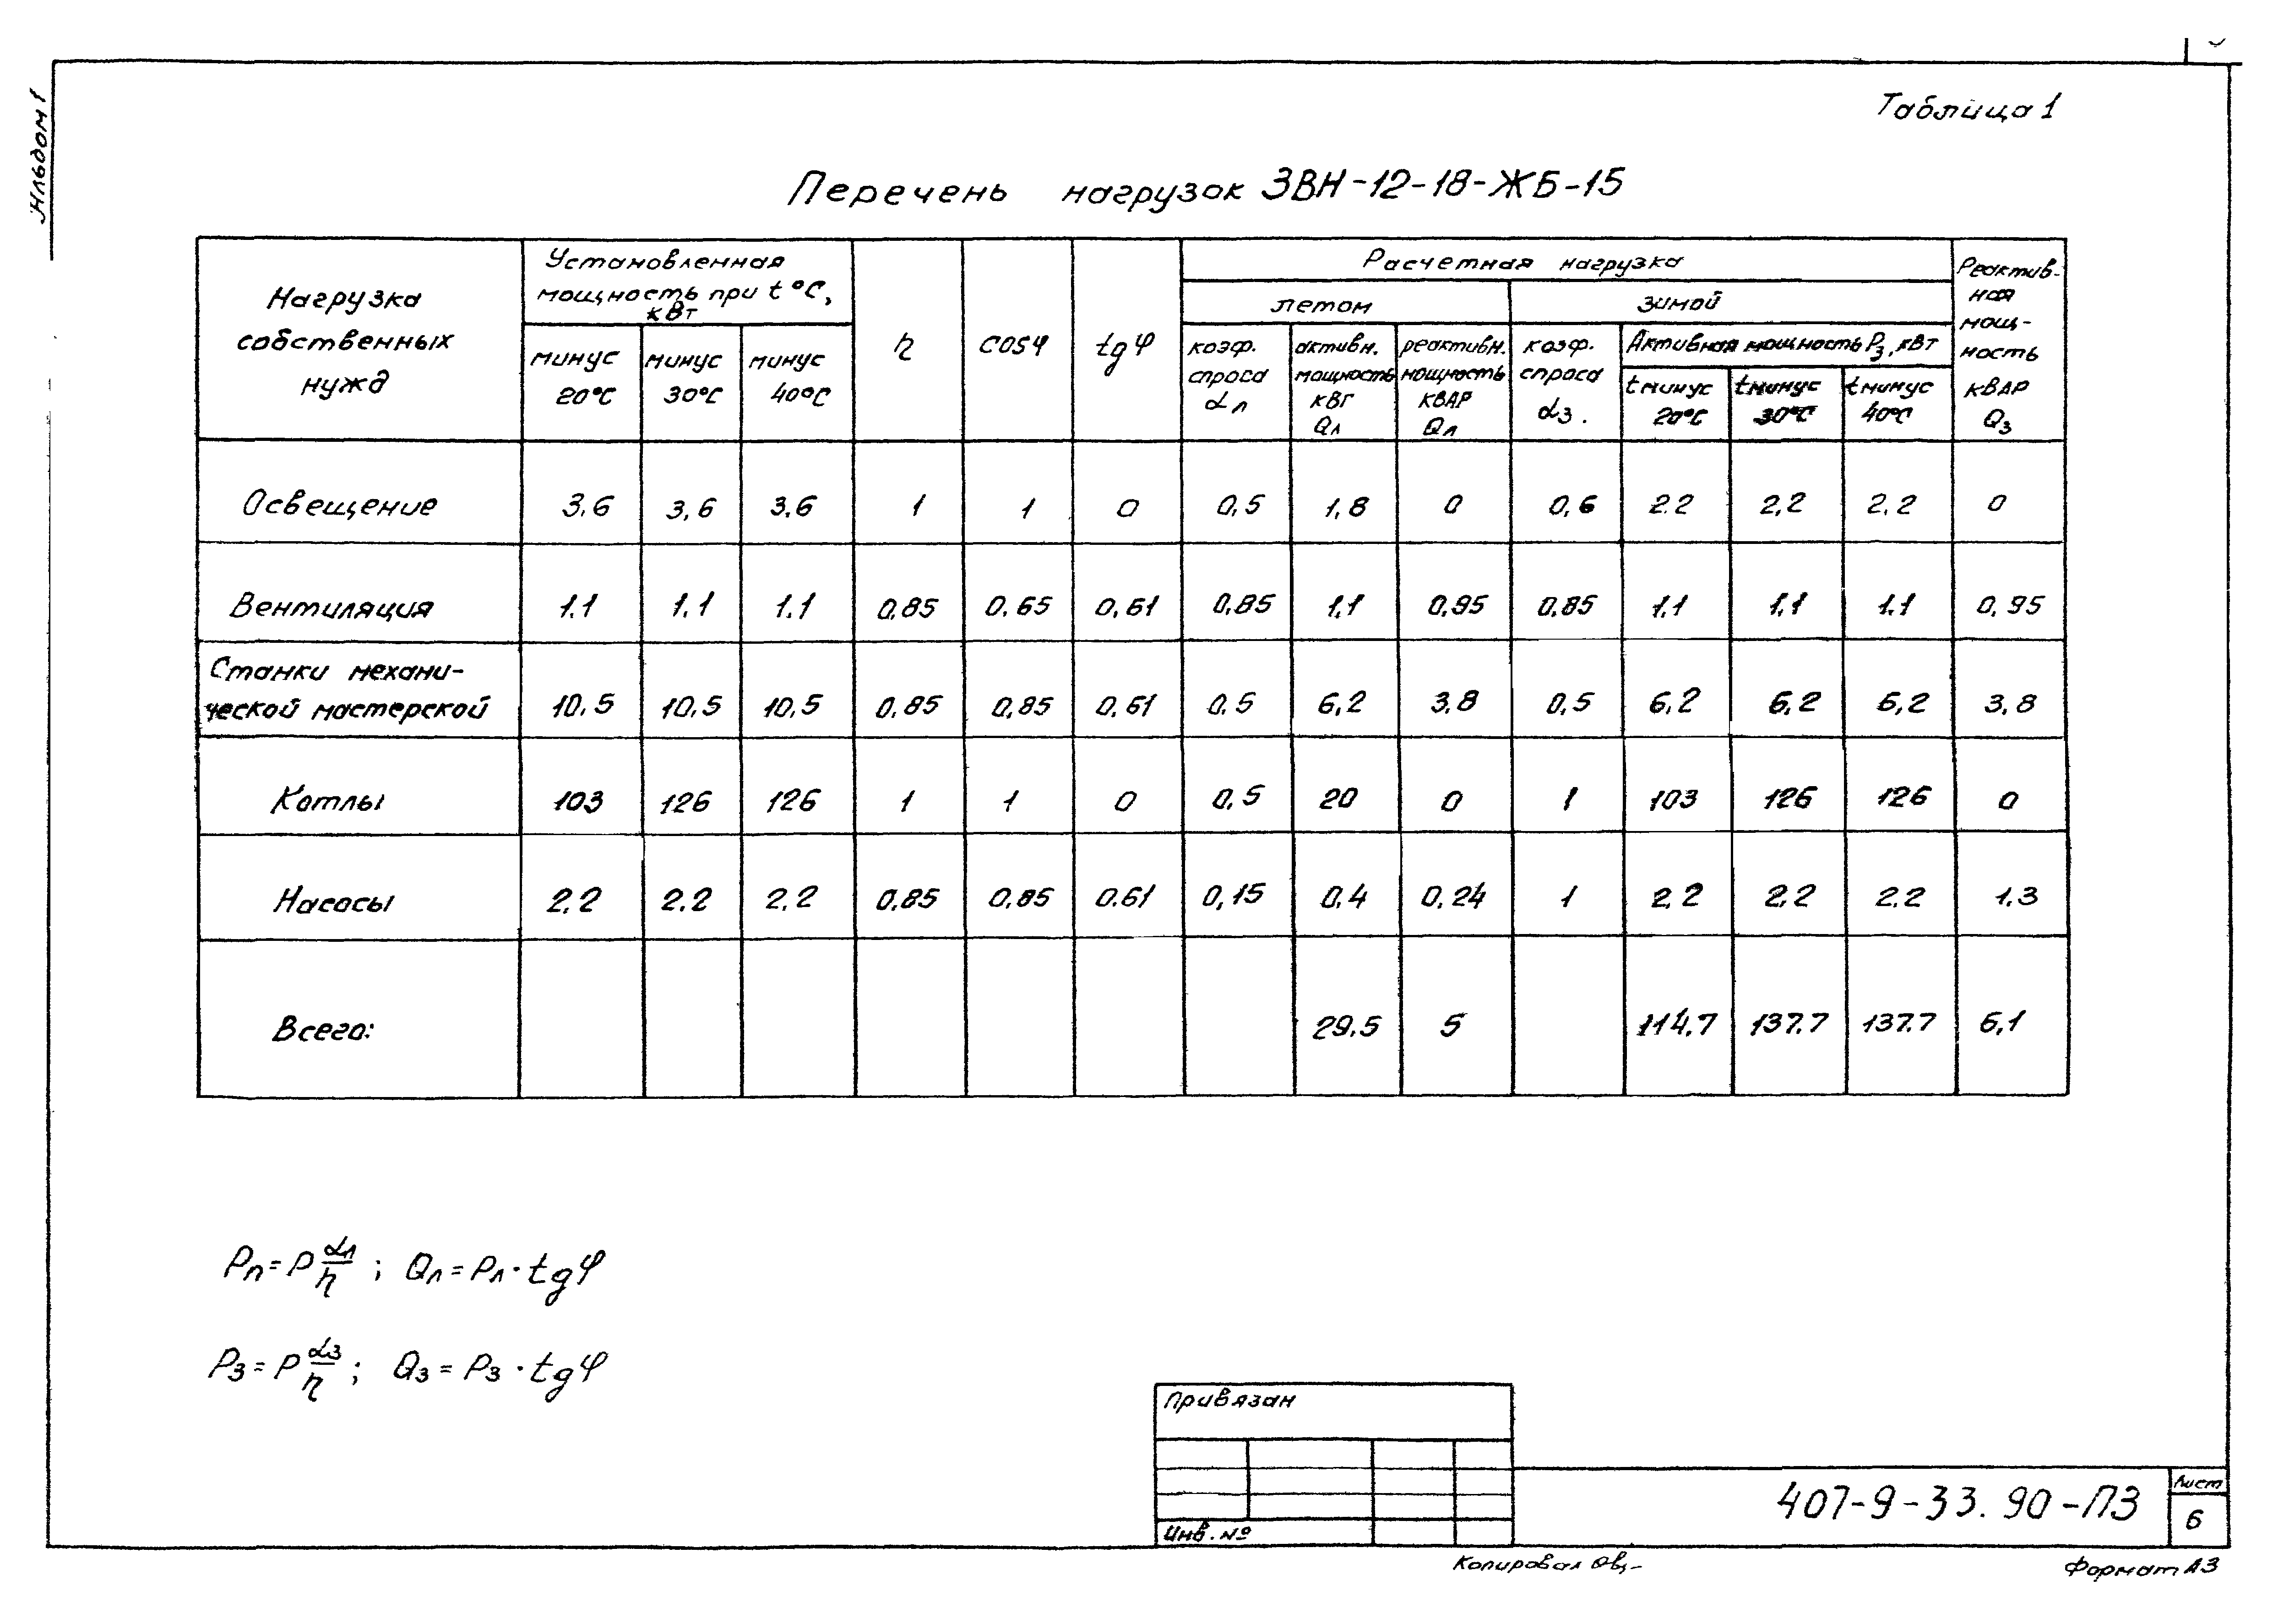 Альбом 1
Таблица 1
Перечень нагрузок ЗВН-12-18-ЖБ-15
Нагрузка собственных нужд
Установленная мощность при t°С, кВт
минус 20°С
минус 30°С
минус 40°С
η
cosφ
tgφ
Расчетная нагрузка
летом
зимой
коэф. спроса αл
активн. мощность кВт Qл
реактивн. мощность кВАР Qл
коэф. спроса αз.
Активная мощность Рз, кВт
t минус 20°С
t минус 30°С
t минус 40°С
Реактив- ная мощ- ность кВАР Qз
Освещение 3,6 3,6 3,6 1 1 0 0,5 1,8 0 0,6 2.2 2,2 2,2 0
Вентиляция 1.1 1.1 1.1 0,85 0,65 0,61 0,85 1,1 0,95 0,85 1.1 1,1 1.1 0,95
Станки механи-
ческой мастерской 10,5 10,5 10,5 0,85 0,85 0,61 0.5 6,2 3,8 0,5 6,2 6,2 6,2 3,8
Котлы 103 126 126 1 1 0 0,5 20 0 1 103 126 126 0
Насосы 2,2 2,2 2,2 0,85 0,85 0.61 0,15 0,4 0,24 1 2,2 2,2 2.2 1.3
Всего: 29,5 5 114,7 137.7 137.7 6,1
Рл = Р αл/η ; Qл = Рл · tgφ
Рз = Р αз/η ; Qз = Рз · tgφ
Привязан
Инв. №
407-9-33.90-ПЗ
Лист
6
Копировал
Формат А3